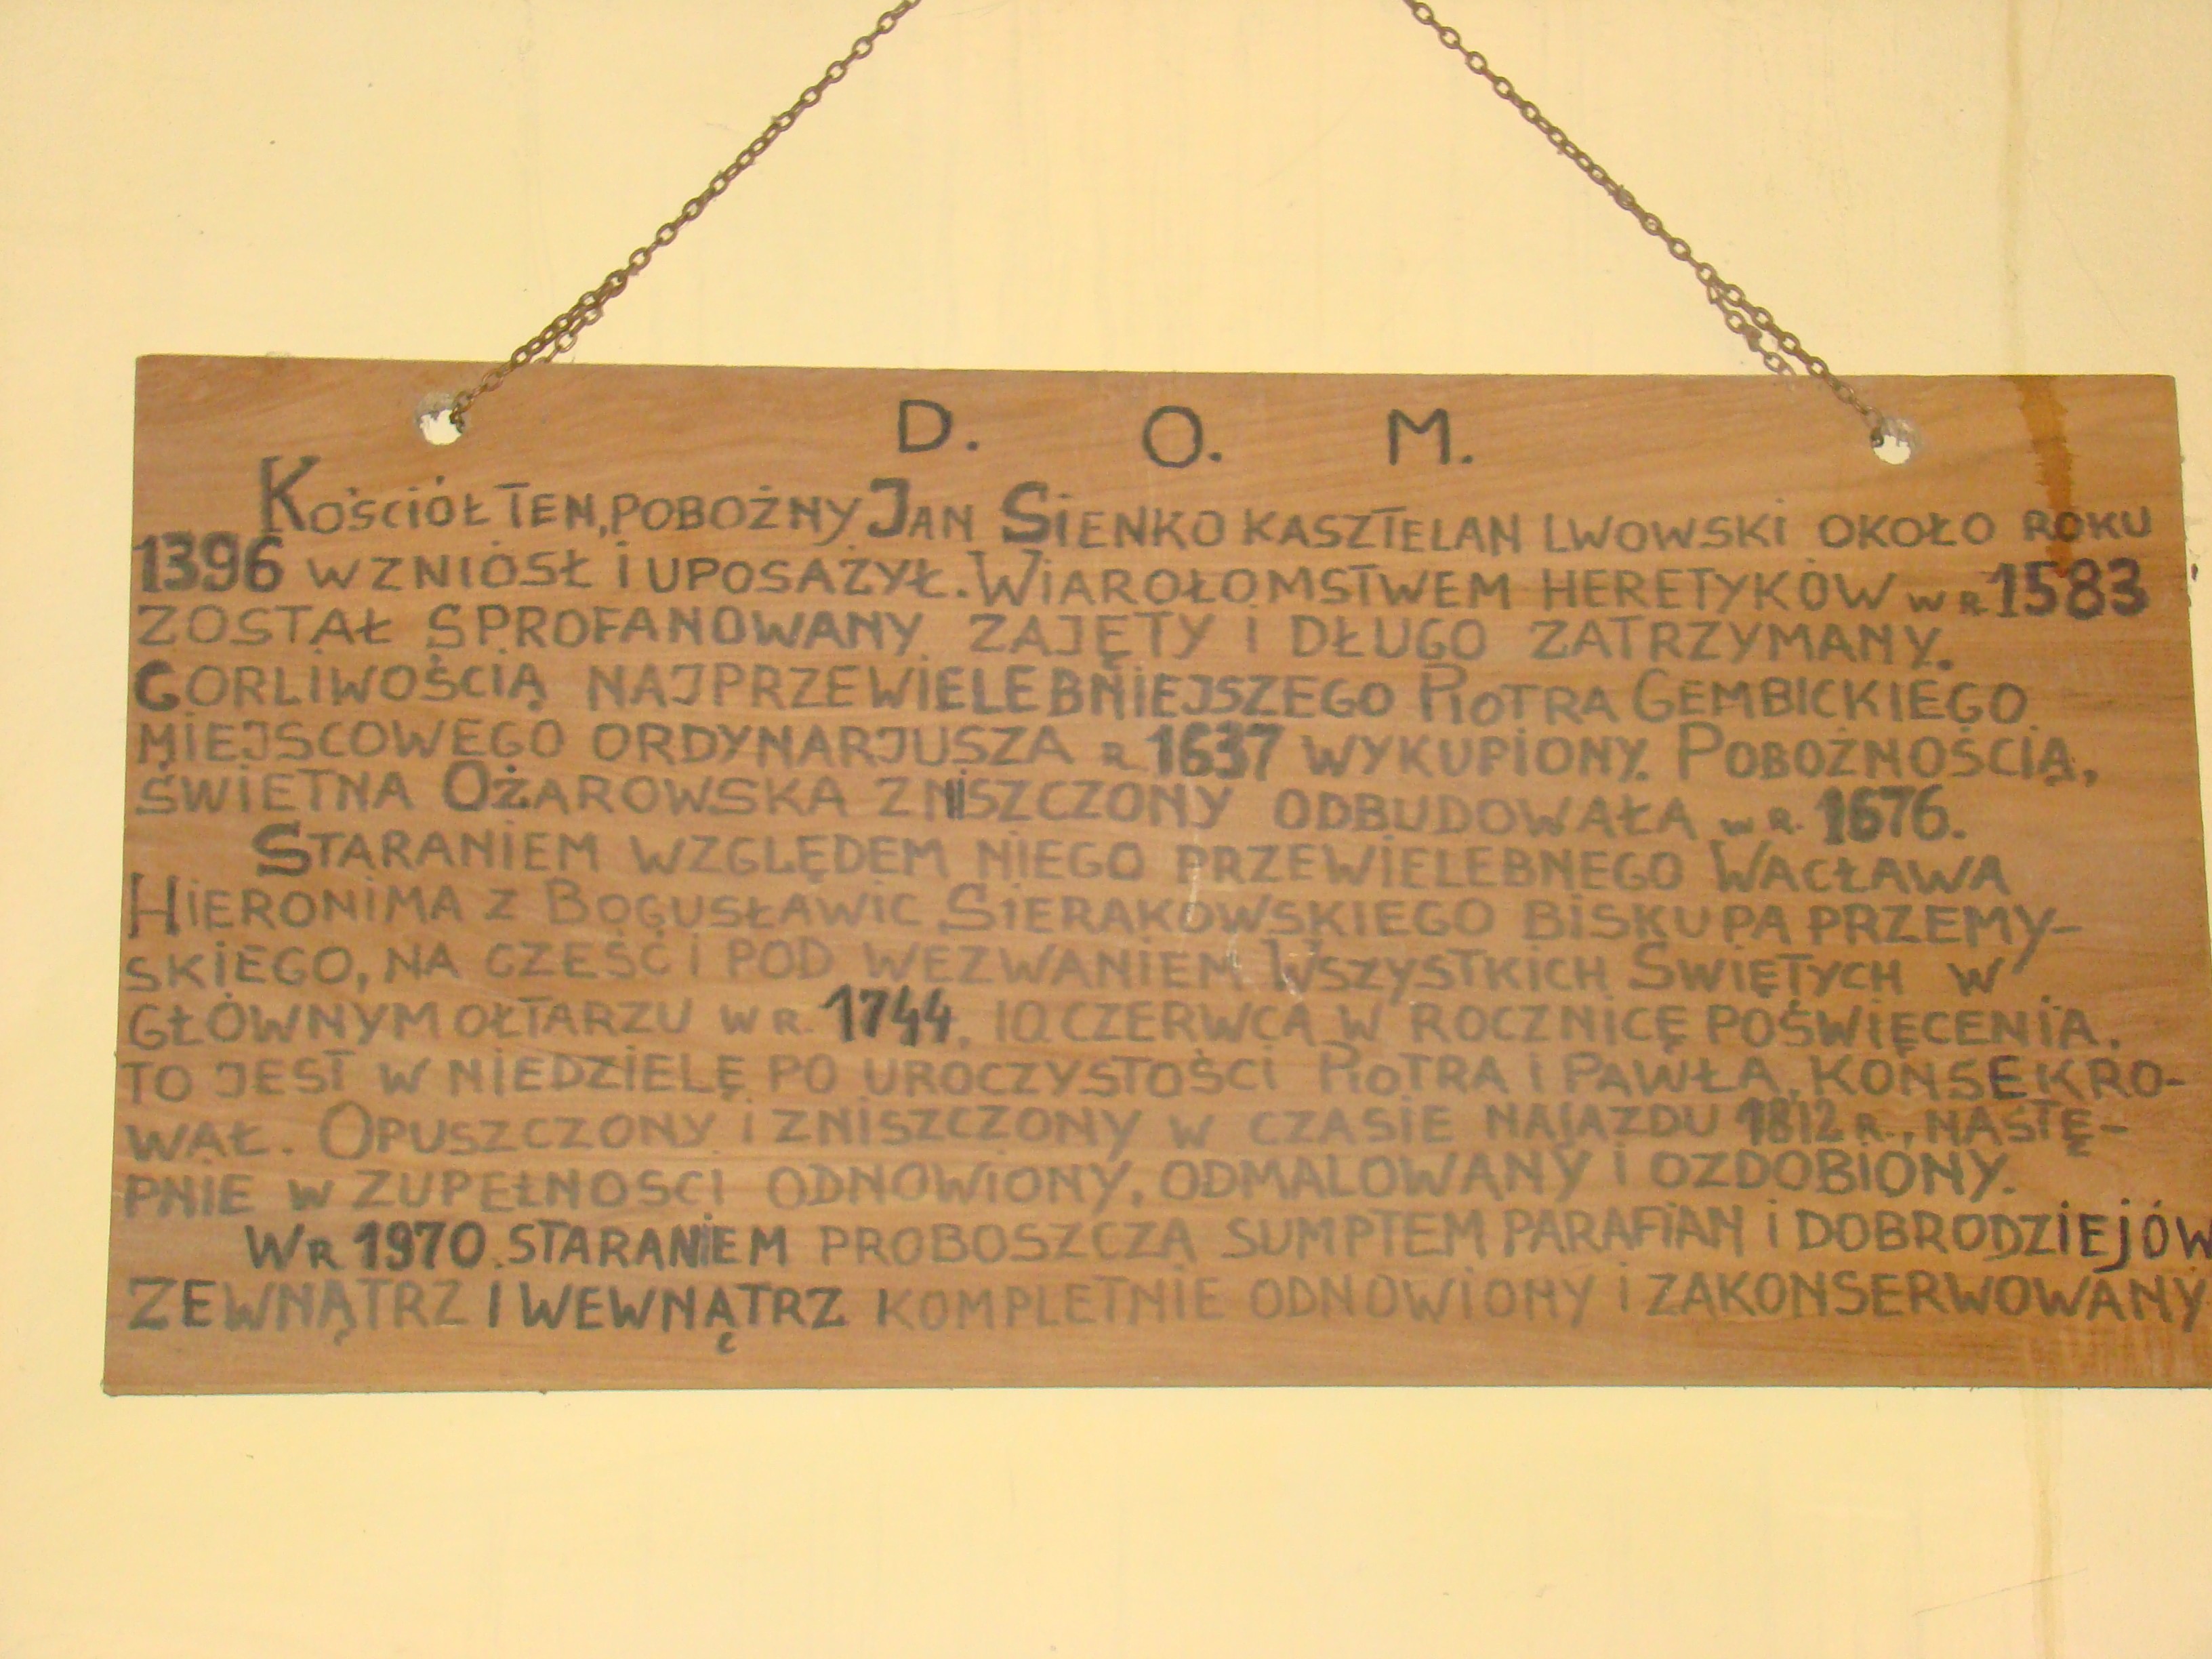 D. O. M.
KOŚCIÓŁ TEN, POBOŻNY JAN SIENKO KASZTELAN LWOWSKI OKOŁO ROKU
1396 WZNIÓSŁ I UPOSAŻYŁ. WIAROŁOMSTWEM HERETYKÓW W R 1583
ZOSTAŁ SPROFANOWANY ZAJĘTY I DŁUGO ZATRZYMANY.
GORLIWOŚCIĄ NAJPRZEWIELEBNIEJSZEGO PIOTRA GEMBICKIEGO
MIEJSCOWEGO ORDYNARJUSZA R 1637 WYKUPIONY. POBOŻNOŚCIĄ,
ŚWIETNA OŻAROWSKA ZNISZCZONY ODBUDOWAŁA W R. 1676.
STARANIEM WZGLĘDEM NIEGO PRZEWIELEBNEGO WACŁAWA
HIERONIMA Z BOGUSŁAWIC SIERAKOWSKIEGO BISKUPA PRZEMY-
SKIEGO, NA CZEŚĆ I POD WEZWANIEM WSZYSTKICH ŚWIĘTYCH W
GŁÓWNYM OŁTARZU W R. 1744. 10 CZERWCA W ROCZNICĘ POŚWIĘCENIA.
TO JEST W NIEDZIELĘ PO UROCZYSTOŚCI PIOTRA I PAWŁA, KONSEKRO-
WAŁ. OPUSZCZONY I ZNISZCZONY W CZASIE NAJAZDU 1812 R., NASTĘ-
PNIE W ZUPEŁNOŚCI ODNOWIONY, ODMALOWANY I OZDOBIONY.
W R 1970. STARANIEM PROBOSZCZA SUMPTEM PARAFIAN I DOBRODZIEJÓW
ZEWNĄTRZ I WEWNĄTRZ KOMPLETNIE ODNOWIONY I ZAKONSERWOWANY